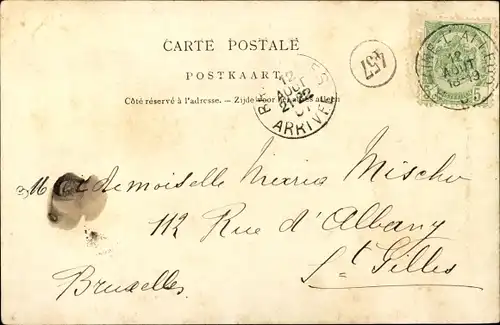 CARTE POSTALE
POSTKAART
Côté réservé à l'adresse. - Zijde voor het adres alleen
12
AOUT
21-22
ARRIVÉE
457
12
AOUT
18-19
5
Mademoiselle Maria
112 Rue d'Albany
St Gilles
Bruxelles